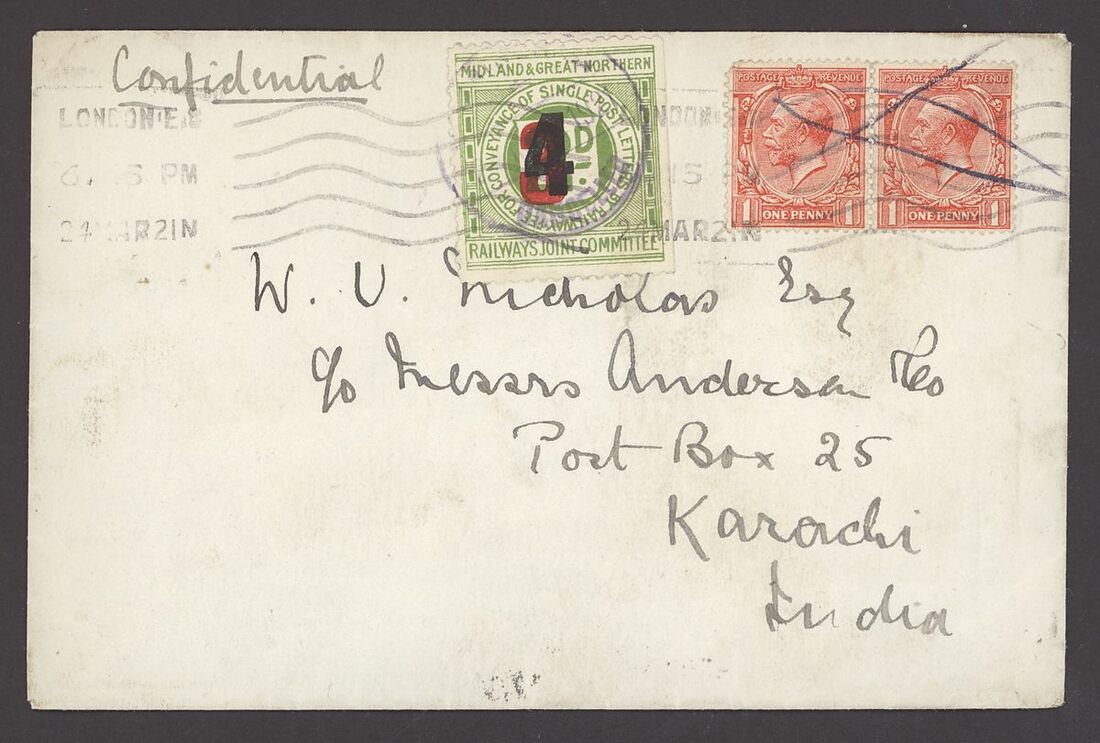 Confidential
LONDON·E.C
6. 15 PM
24 MAR 21 N
MIDLAND & GREAT NORTHERN
FEE FOR CONVEYANCE OF SINGLE POST LETTERS BY RAILWAY
4
RAILWAYS JOINT COMMITTEE
24 MAR 21 N
POSTAGE REVENUE
1 ONE PENNY 1
POSTAGE REVENUE
1 ONE PENNY 1
W. U. Nicholas Esq
c/o Messrs Anderson & Co
Post Box 25
Karachi
India